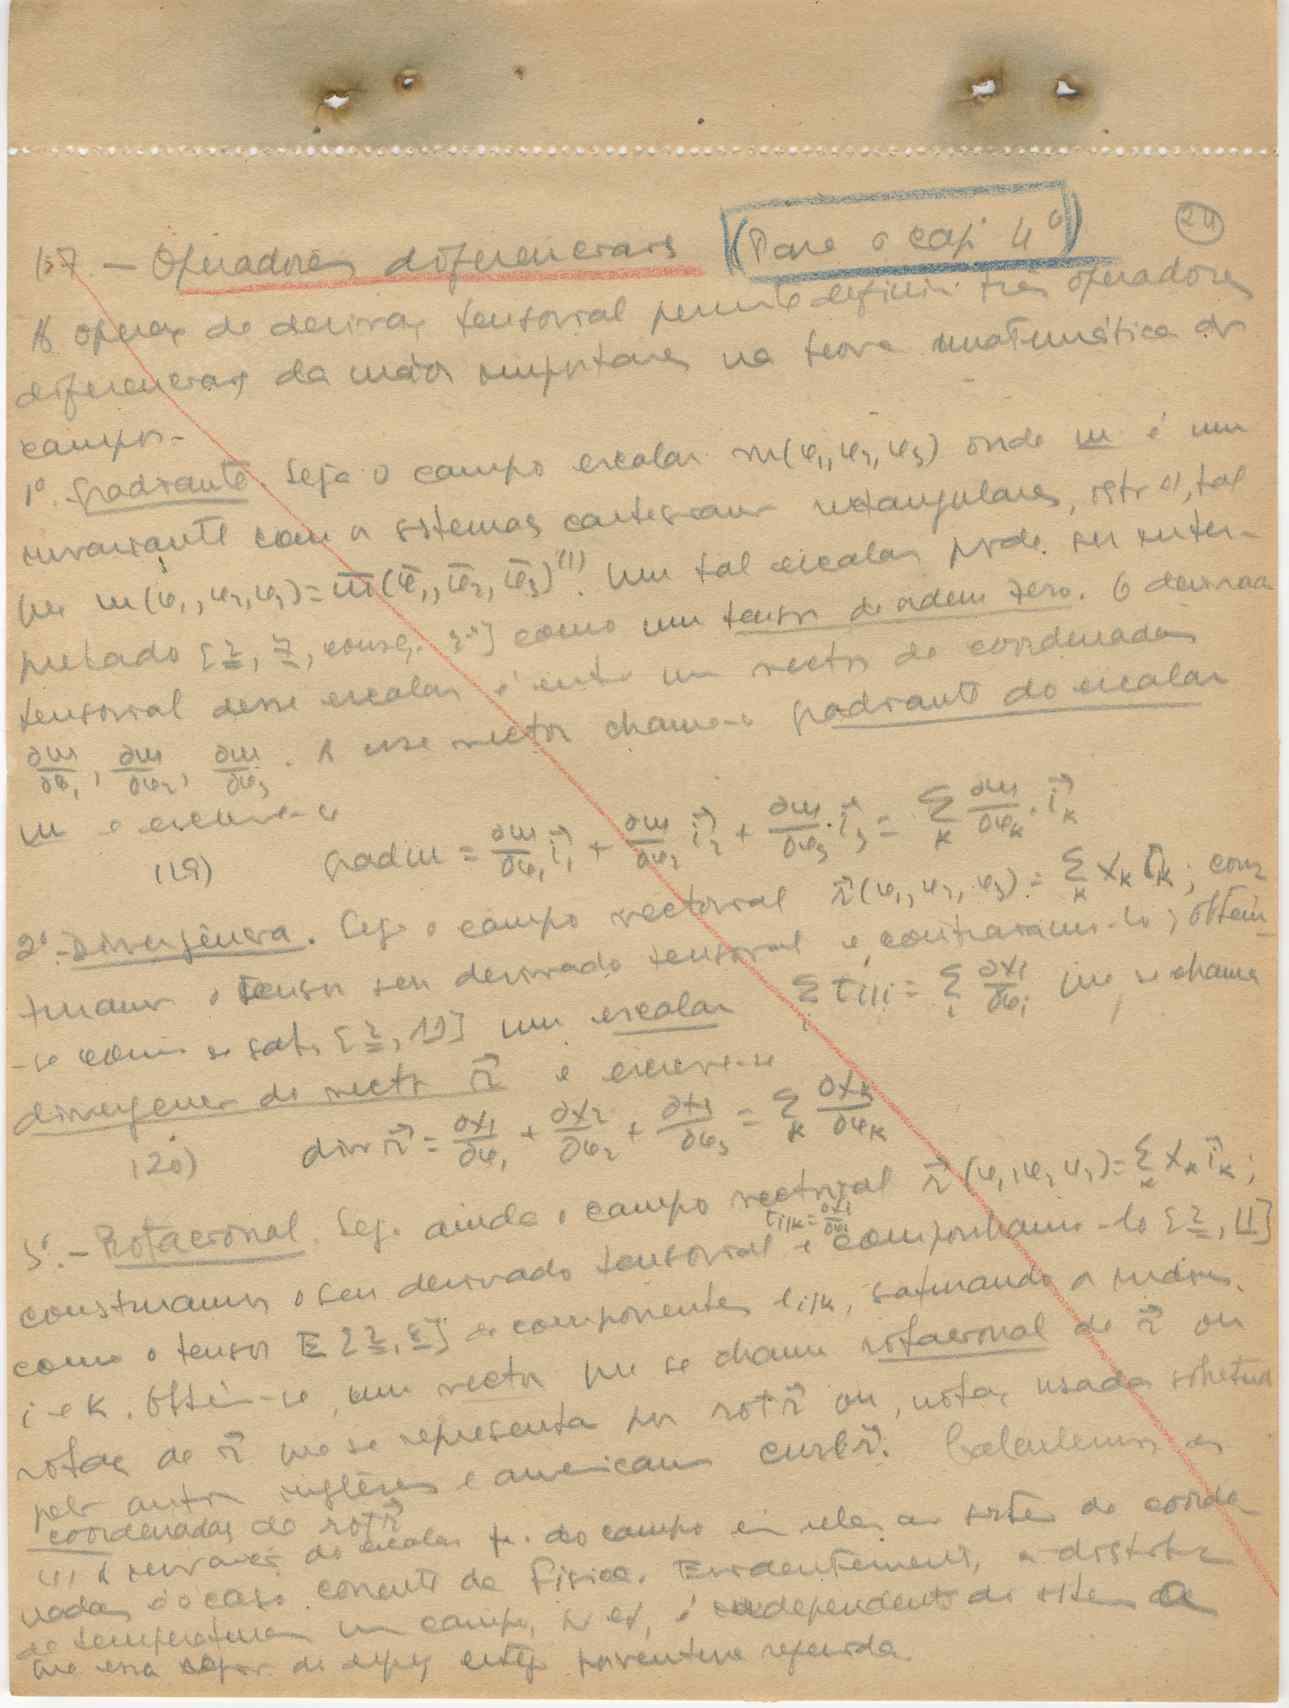 24
1.7 — Operadores diferenciais (Para o cap. 4º)
A operaç. de derivaç. tensorial permite definir três operadores
diferenciais da maior importanc. na teoria matemática do
campo.
1º. Gradiante. Seja o campo escalar m(φ₁, φ₂, φ₃) onde m é um
invariante com os sistemas cartesianos rectangulares, isto é, tal
que m(φ₁, φ₂, φ₃) = m̄(φ̄₁, φ̄₂, φ̄₃)⁽¹⁾. Um tal escalar pode ser inter-
pretado [2, 7, conseq. 2ª] como um tensor de ordem zero. O derivado
tensorial desse escalar é então um vector de coordenadas
∂m/∂φ₁, ∂m/∂φ₂, ∂m/∂φ₃. A esse vector chama-se gradiante do escalar
m e escreve-se
(19) grad m = ∂m/∂φ₁ i⃗₁ + ∂m/∂φ₂ i⃗₂ + ∂m/∂φ₃ · i⃗₃ = Σ_k ∂m/∂φ_k · i⃗_k
2º. - Divergência. Seja o campo vectorial r⃗(φ₁, φ₂, φ₃) = Σ_k X_k i⃗_k; cons-
truamos o tensor seu derivado tensorial e contraiamo-lo; obtém-
-se como se sabe [2, 19] um escalar Σ_i t_i|i = Σ_i ∂X_i/∂φ_i que se chama
divergencia do vector r⃗ e escreve-se
(20) div r⃗ = ∂X₁/∂φ₁ + ∂X₂/∂φ₂ + ∂X₃/∂φ₃ = Σ_k ∂X_k/∂φ_k
3º. - Rotacional Seja ainda o campo vectorial r⃗(φ₁, φ₂, φ₃) = Σ_k X_k i⃗_k;
t_i|k = ∂X_i/∂φ_k
construamos o seu derivado tensorial e componhamo-lo [2, 11]
como o tensor E [2, 8] de componentes t_i|k, saturando os indices
i e k. Obtém-se um vector que se chama rotacional de r⃗ ou
rotaç. de r⃗ que se representa por rot r⃗ ou, notaç. usada sobretudo
pelos autores ingleses e americanos curl r⃗. Calculemos as
coordenadas de rot r⃗
(1) A invarianc. do escalar f. do campo em relaç. ao sistema de coorde-
nadas é o caso corrente da Física. Evidentemente, a distribuiç.
de temperaturas num campo, p. ex., é independente do sistema a
que essa região de espaço esteja porventura referida.